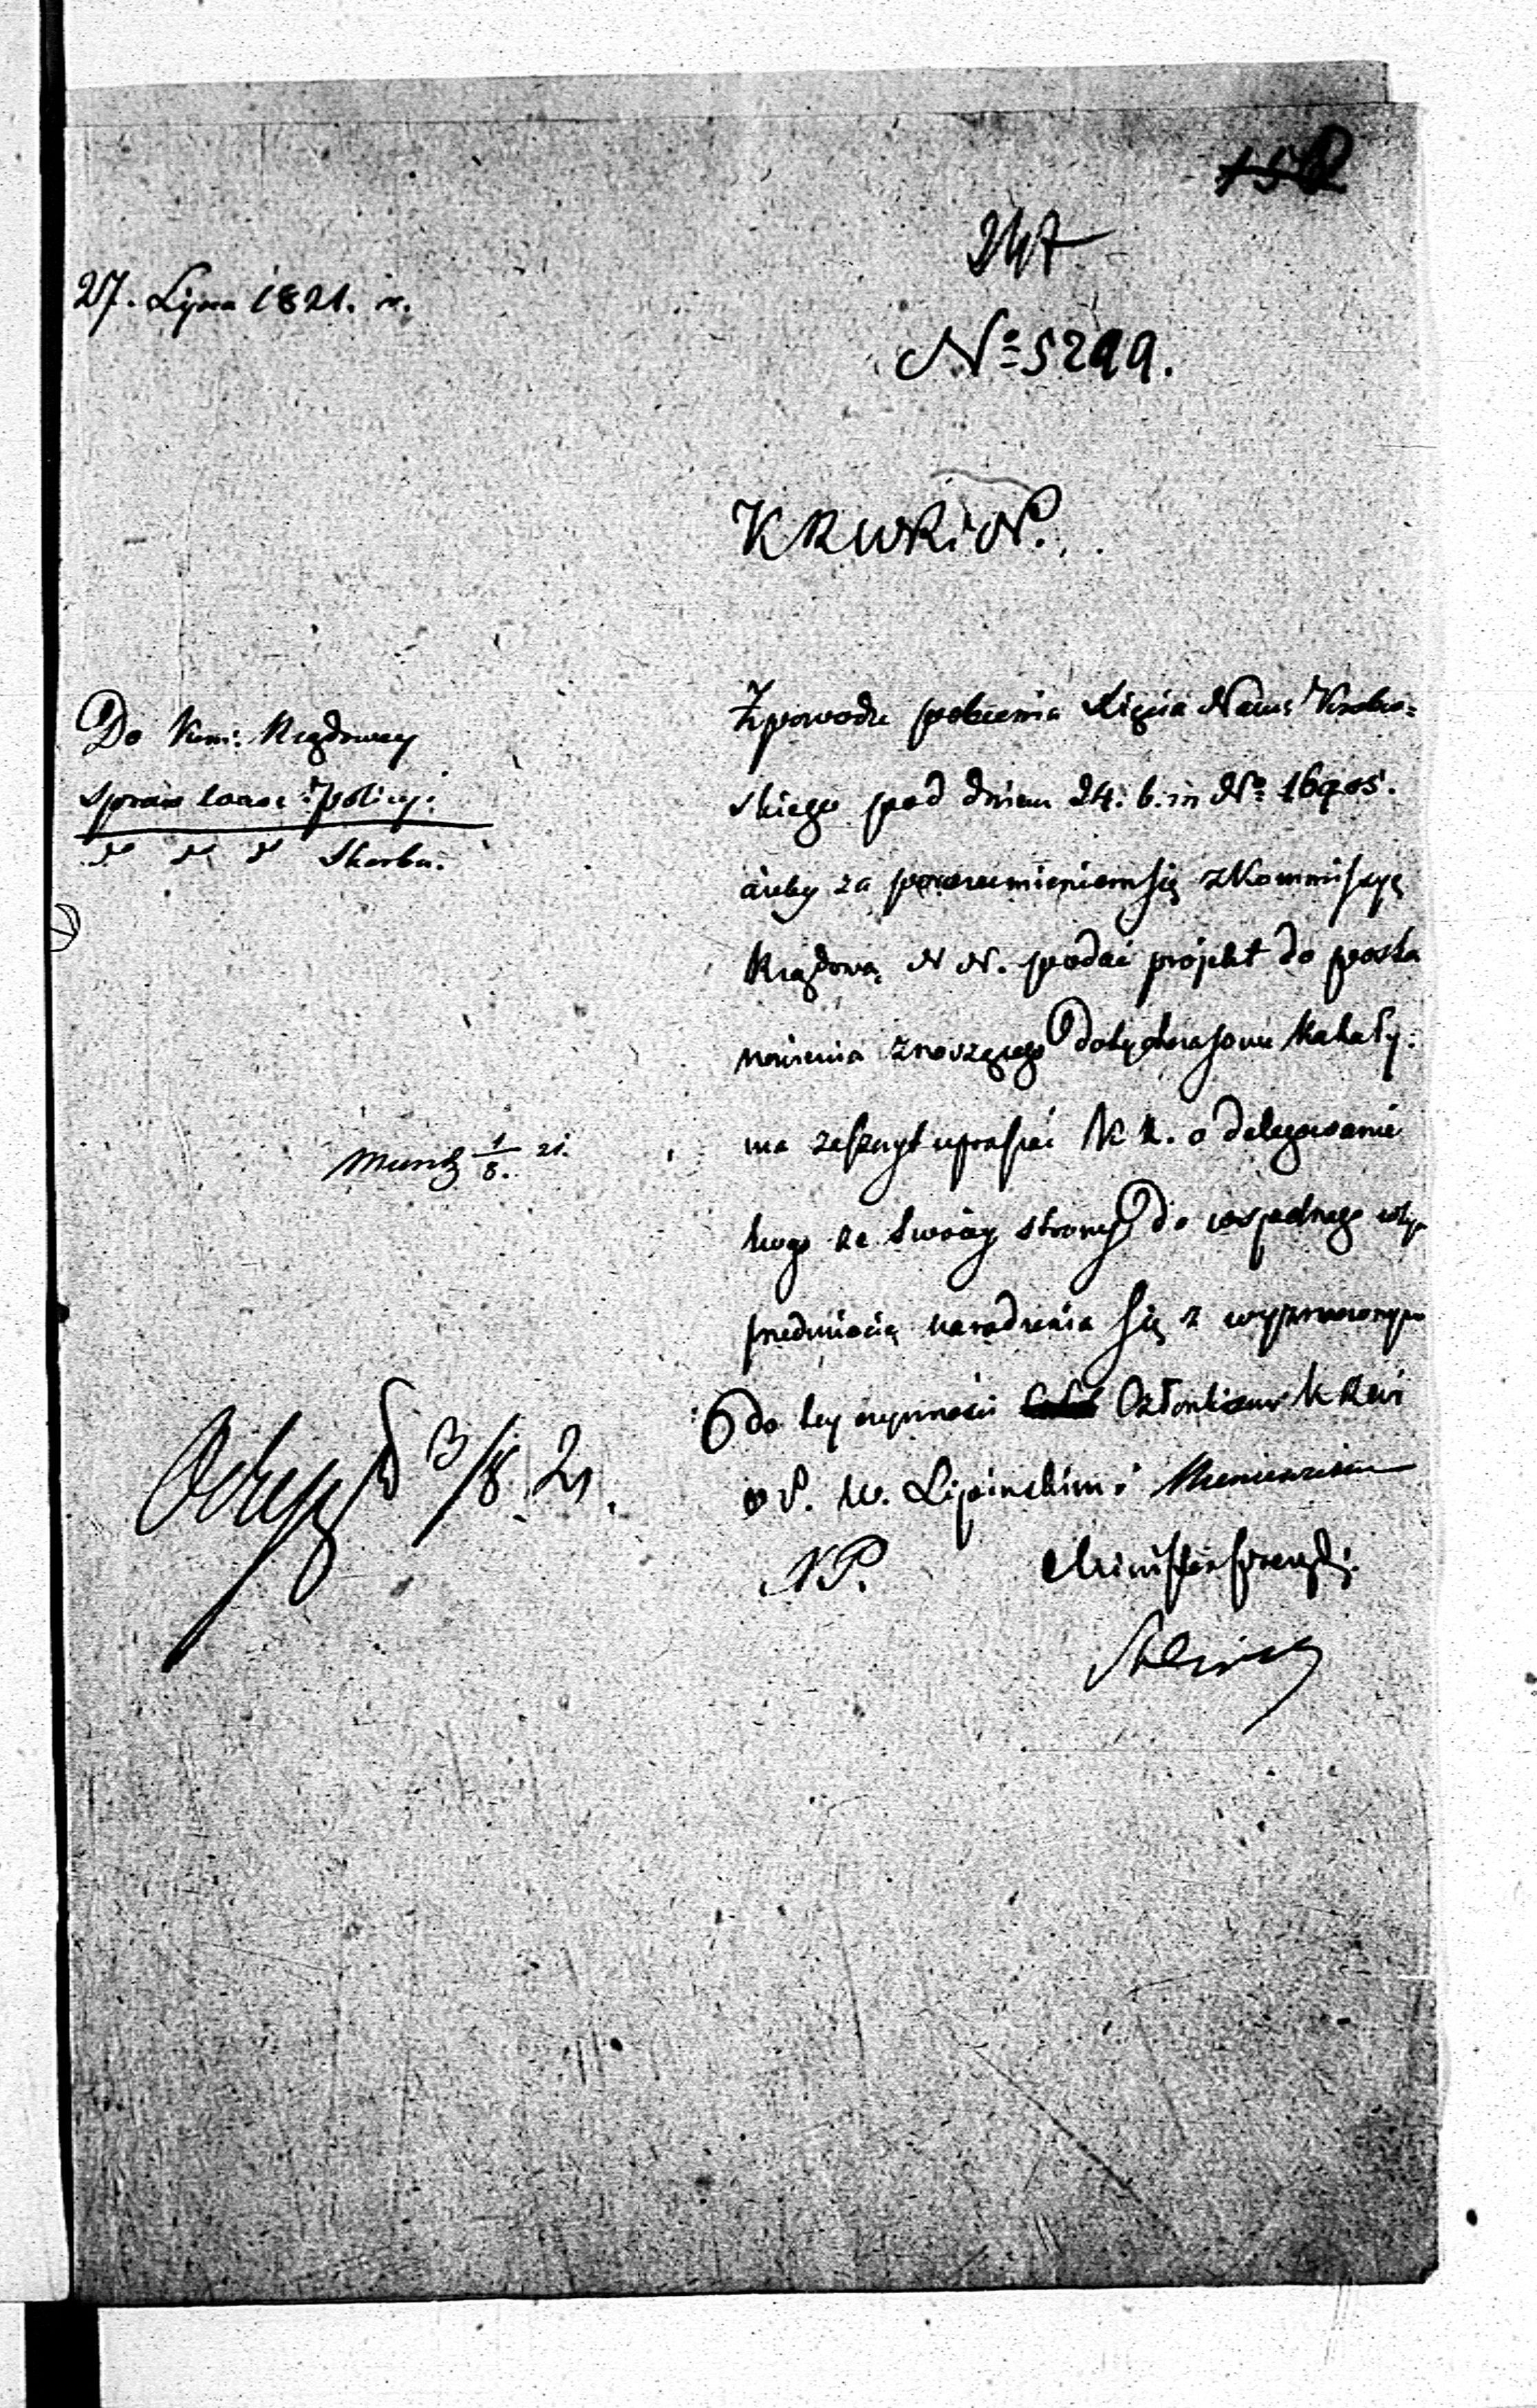 247
27. Lipca 1821. r.
No 5299.
KRWRiOP.
Do Kom: Rządowey
Spraw Wewn: i Policyi:
Skarbu.
Z powodu polecenia Xięcia Namiestnika Królew=
skiego pod dniem 24. b. m No 16905.
ażeby za porozumieniem się z Kommissyą
Rządową N N. podać projekt do posta
nowienia znoszącego dotychczasowe Kahały.
ma zaszczyt upraszać K R. o delegowanie
kogo ze swoiey strony do wspólnego w tym
przedmiocie naradzenia się z wyznaczonym
do tey czynności Członkiem K R W i
O P. W. Lipińskim i
Minister Prezyd:
1/8. 21.
3/8 21.